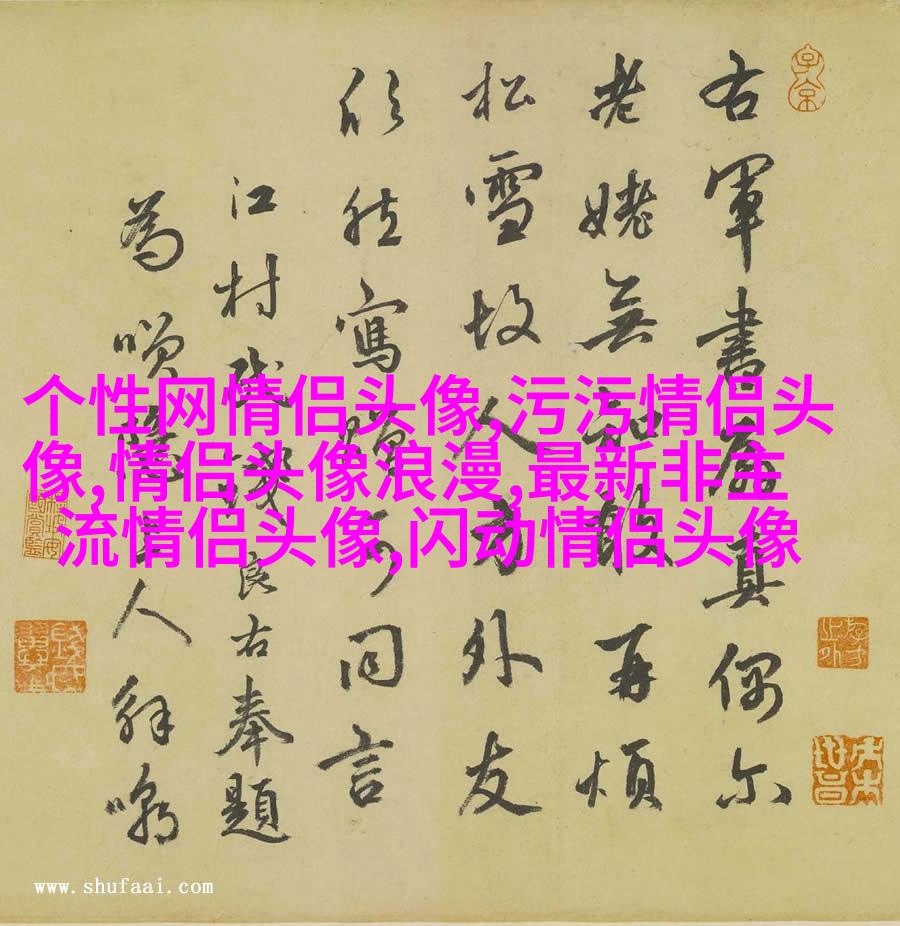 右軍書真偶尔
老姥無知敢再煩
松雪故人方外友
欣然寫贈可同言
江村良右奉題
為隱上人解嘲
个性网情侣头像,污污情侣头
像,情侣头像浪漫,最新非主
流情侣头像,闪动情侣头像
www.shufaai.com